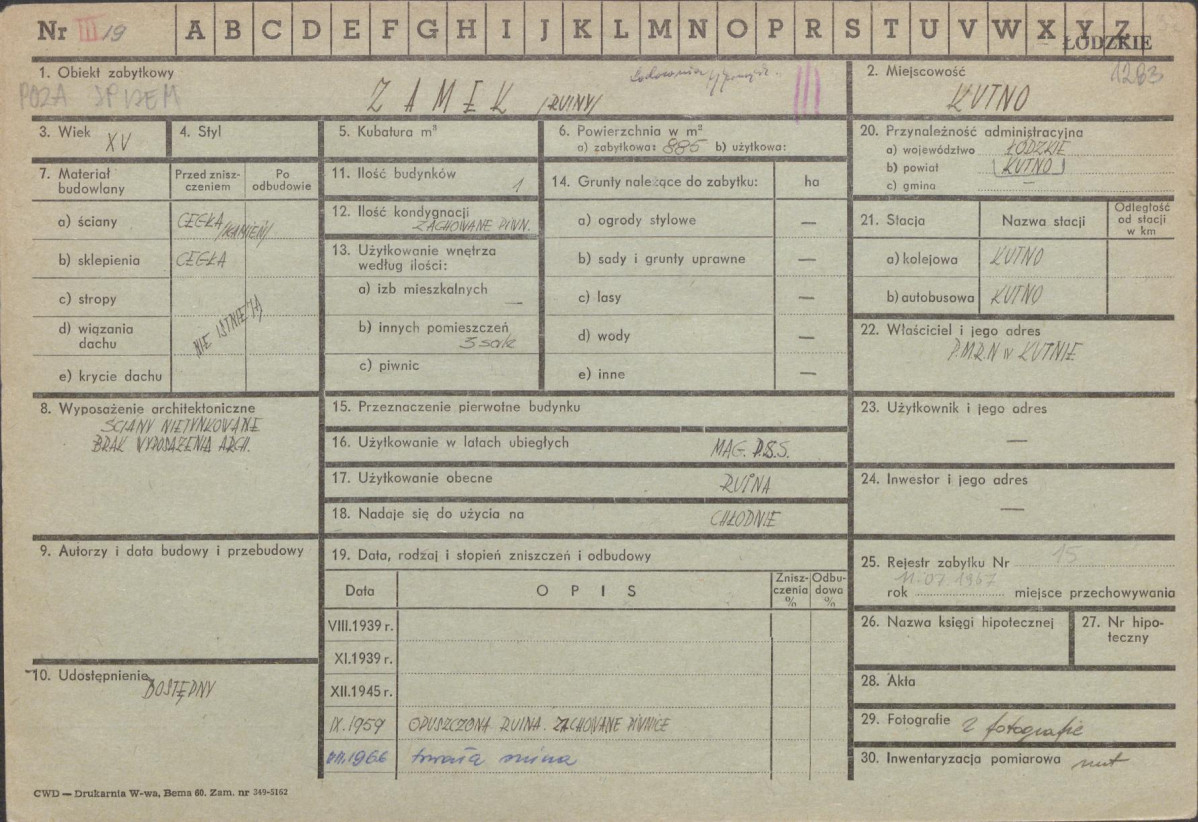 Nr III 19 A B C D E F G H I J K L M N O P R S T U V W X Y Z
ŁÓDZKIE
1. Obiekt zabytkowy
POZA SPISEM
ZAMEK /RUINY/
III
2. Miejscowość
1283
KUTNO
3. Wiek
XV
4. Styl
5. Kubatura m³
6. Powierzchnia w m²
a) zabytkowa: 885 b) użytkowa:
7. Materiał budowlany
Przed zniszczeniem
Po odbudowie
a) ściany CEGŁA /KAMIEŃ/
b) sklepienia CEGŁA
c) stropy
d) wiązania dachu
NIE ISTNIEJĄ
e) krycie dachu
8. Wyposażenie architektoniczne
ŚCIANY NIETYNKOWANE
BRAK WYPOSAŻENIA ARCH.
9. Autorzy i data budowy i przebudowy
10. Udostępnienie
DOSTĘPNY
11. Ilość budynków
1
12. Ilość kondygnacji
ZACHOWANE PIWN.
13. Użytkowanie wnętrza
według ilości:
a) izb mieszkalnych —
b) innych pomieszczeń
3 sale
c) piwnic
14. Grunty należące do zabytku: ha
a) ogrody stylowe —
b) sady i grunty uprawne —
c) lasy —
d) wody —
e) inne —
15. Przeznaczenie pierwotne budynku
16. Użytkowanie w latach ubiegłych MAG. P.S.S.
17. Użytkowanie obecne RUINA
18. Nadaje się do użycia na CHŁODNIE
19. Data, rodzaj i stopień zniszczeń i odbudowy
Data OPIS Zniszczenia % Odbudowa %
VIII.1939 r.
XI.1939 r.
XII.1945 r.
IX.1959 OPUSZCZONA RUINA. ZACHOWANE PIWNICE
VII.1966 trwała ruina
20. Przynależność administracyjna
a) województwo ŁÓDZKIE
b) powiat KUTNO
c) gmina —
21. Stacja Nazwa stacji Odległość od stacji w km
a) kolejowa KUTNO
b) autobusowa KUTNO
22. Właściciel i jego adres
P.M.R.N W KUTNIE
23. Użytkownik i jego adres
—
24. Inwestor i jego adres
—
25. Rejestr zabytku Nr 15
11.07.1967
rok miejsce przechowywania
26. Nazwa księgi hipotecznej
27. Nr hipoteczny
28. Akta
29. Fotografie 2 fotografie
30. Inwentaryzacja pomiarowa
CWD — Drukarnia W-wa, Bema 60. Zam. nr 349-5162